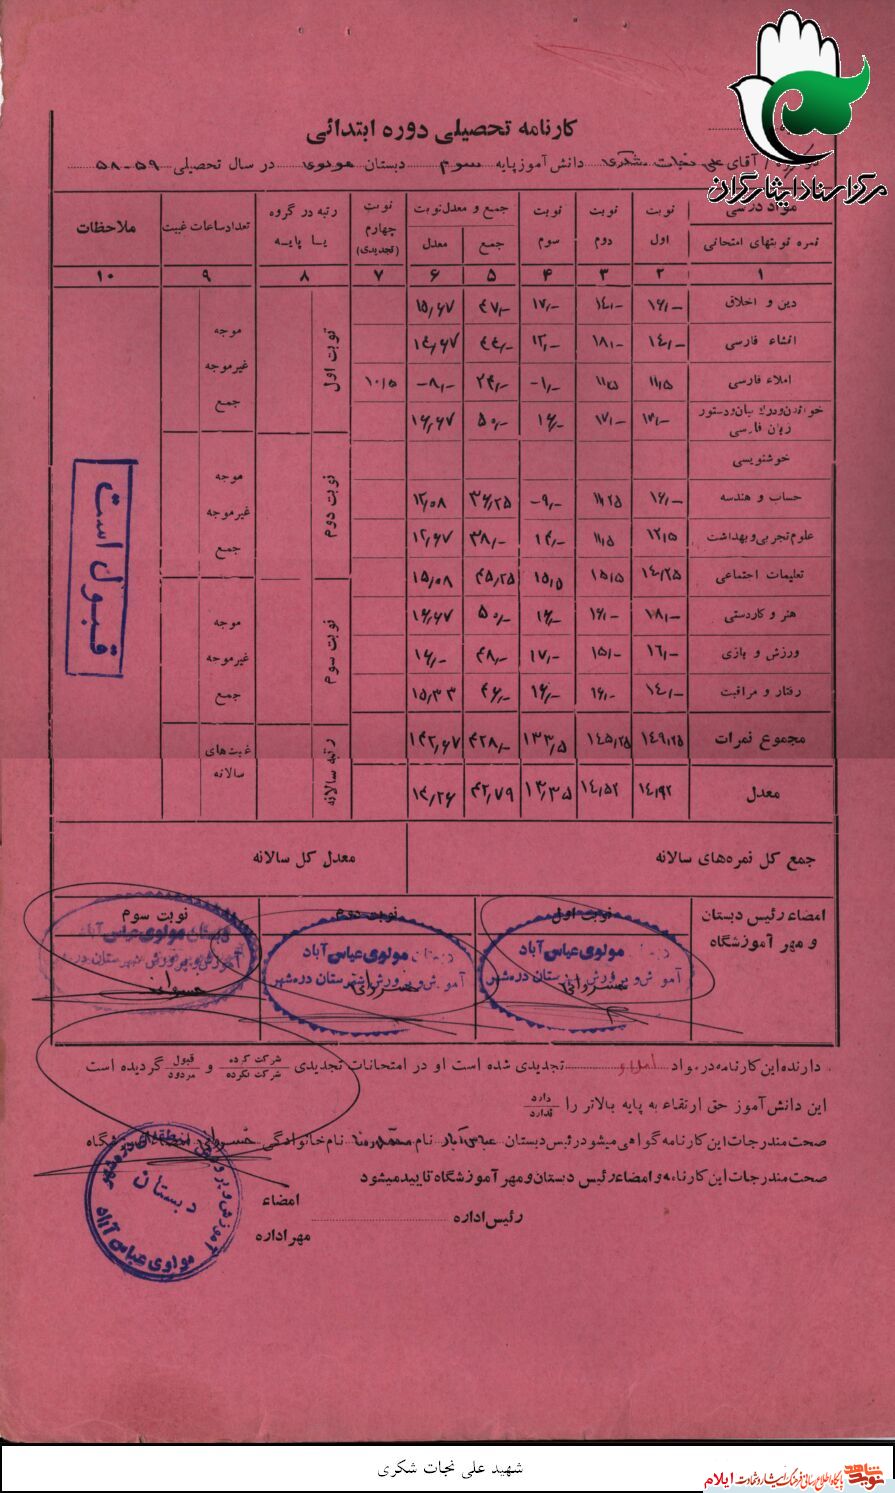 مرکز اسناد ایثارگران
کارنامه تحصیلی دوره ابتدائی
آقای علی نجات شکری دانش آموز پایه سوم دبستان مولوی در سال تحصیلی ۵۹-۵۸
مواد درسی نوبت اول نوبت دوم نوبت سوم جمع و معدل نوبت نوبت چهارم (تجدیدی) رتبه در گروه یا پایه تعداد ساعات غیبت ملاحظات
نمره نوبتهای امتحانی جمع معدل
۱ ۲ ۳ ۴ ۵ ۶ ۷ ۸ ۹ ۱۰
دین و اخلاق ۱۶/- ۱۴/- ۱۷/- ۴۷/- ۱۵/۶۷
انشاء فارسی ۱۴/- ۱۸/- ۱۲/- ۴۴/- ۱۴/۶۷
املاء فارسی ۱۱/۵ ۱۱/۵ ۱/- ۲۴/- ۸/- ۱۰/۵
خواندن و درک بیان و دستور زبان فارسی ۱۷/- ۱۷/- ۱۶/- ۵۰/- ۱۶/۶۷
خوشنویسی
حساب و هندسه ۱۶/- ۱۱/۲۵ ۹/- ۳۶/۲۵ ۱۲/۰۸
علوم تجربی و بهداشت ۱۲/۵ ۱۱/۵ ۱۴/- ۳۸/- ۱۲/۶۷
تعلیمات اجتماعی ۱۴/۲۵ ۱۵/۵ ۱۵/۵ ۴۵/۲۵ ۱۵/۰۸
هنر و کاردستی ۱۸/- ۱۶/- ۱۶/- ۵۰/- ۱۶/۶۷
ورزش و بازی ۱۶/- ۱۵/- ۱۷/- ۴۸/- ۱۶/-
رفتار و مراقبت ۱۴/- ۱۶/- ۱۶/- ۴۶/- ۱۵/۳۳
مجموع نمرات ۱۴۹/۲۵ ۱۴۵/۲۵ ۱۳۳/۵ ۴۲۸/- ۱۴۲/۶۷
معدل ۱۴/۹۲ ۱۴/۵۲ ۱۳/۳۵ ۴۲/۷۹ ۱۴/۲۶
نوبت اول
موجه
غیرموجه
جمع
نوبت دوم
موجه
غیرموجه
جمع
نوبت سوم
موجه
غیرموجه
جمع
رتبه سالانه
غیبت‌های سالانه
قبول است
جمع کل نمره‌های سالانه معدل کل سالانه
امضاء رئیس دبستان و مهر آموزشگاه نوبت اول نوبت دوم نوبت سوم
دبستان مولوی عباس آباد
آموزش و پرورش شهرستان دره شهر
دبستان مولوی عباس آباد
آموزش و پرورش شهرستان دره شهر
دبستان مولوی عباس آباد
آموزش و پرورش شهرستان دره شهر
دارنده این کارنامه در مواد املاء تجدیدی شده است او در امتحانات تجدیدی شرکت کرده شرکت نکرده و قبول مردود گردیده است
این دانش آموز حق ارتقاء به پایه بالاتر را دارد ندارد
صحت مندرجات این کارنامه گواهی میشود رئیس دبستان عباس آباد نام محمدرضا نام خانوادگی خسروانی امضاء آموزشگاه
صحت مندرجات این کارنامه و امضاء رئیس دبستان و مهر آموزشگاه تایید میشود
رئیس اداره امضاء
مهر اداره
دبستان
مولوی عباس آباد
شهید علی نجات شکری
نوید شاهد
پایگاه اطلاع رسانی فرهنگ ایثار و شهادت ایلام